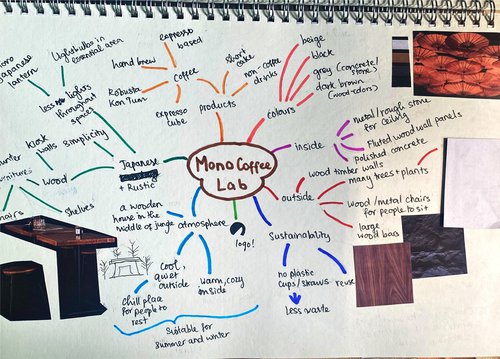 Mono Coffee
Lab
Japanese
+ Rustic
simplicity
less lights
throughout
spaces
Lightbulbs in
essential area
Japanese
lantern
wood
kiosk
walls
shelves
coffee
espresso
based
hand brew
Robusta
Kon Tum
espresso
tube
products
short
cake
non-coffee
drinks
colours
beige
black
grey (concrete/
stone)
dark brown
(wood-colors)
inside
metal/rough stone
for ceiling
Fluted wood wall panels
polished concrete
wood timber walls
outside
many trees + plants
wood/metal chairs
for people to sit
large
wood bars
Sustainability
no plastic
cups/straws
less waste
reuse
logo!
atmosphere
a wooden
house in the
middle of jungle
cool,
quiet
outside
chill place
for people to
rest
warm, cozy
inside
Suitable for
summer and winter